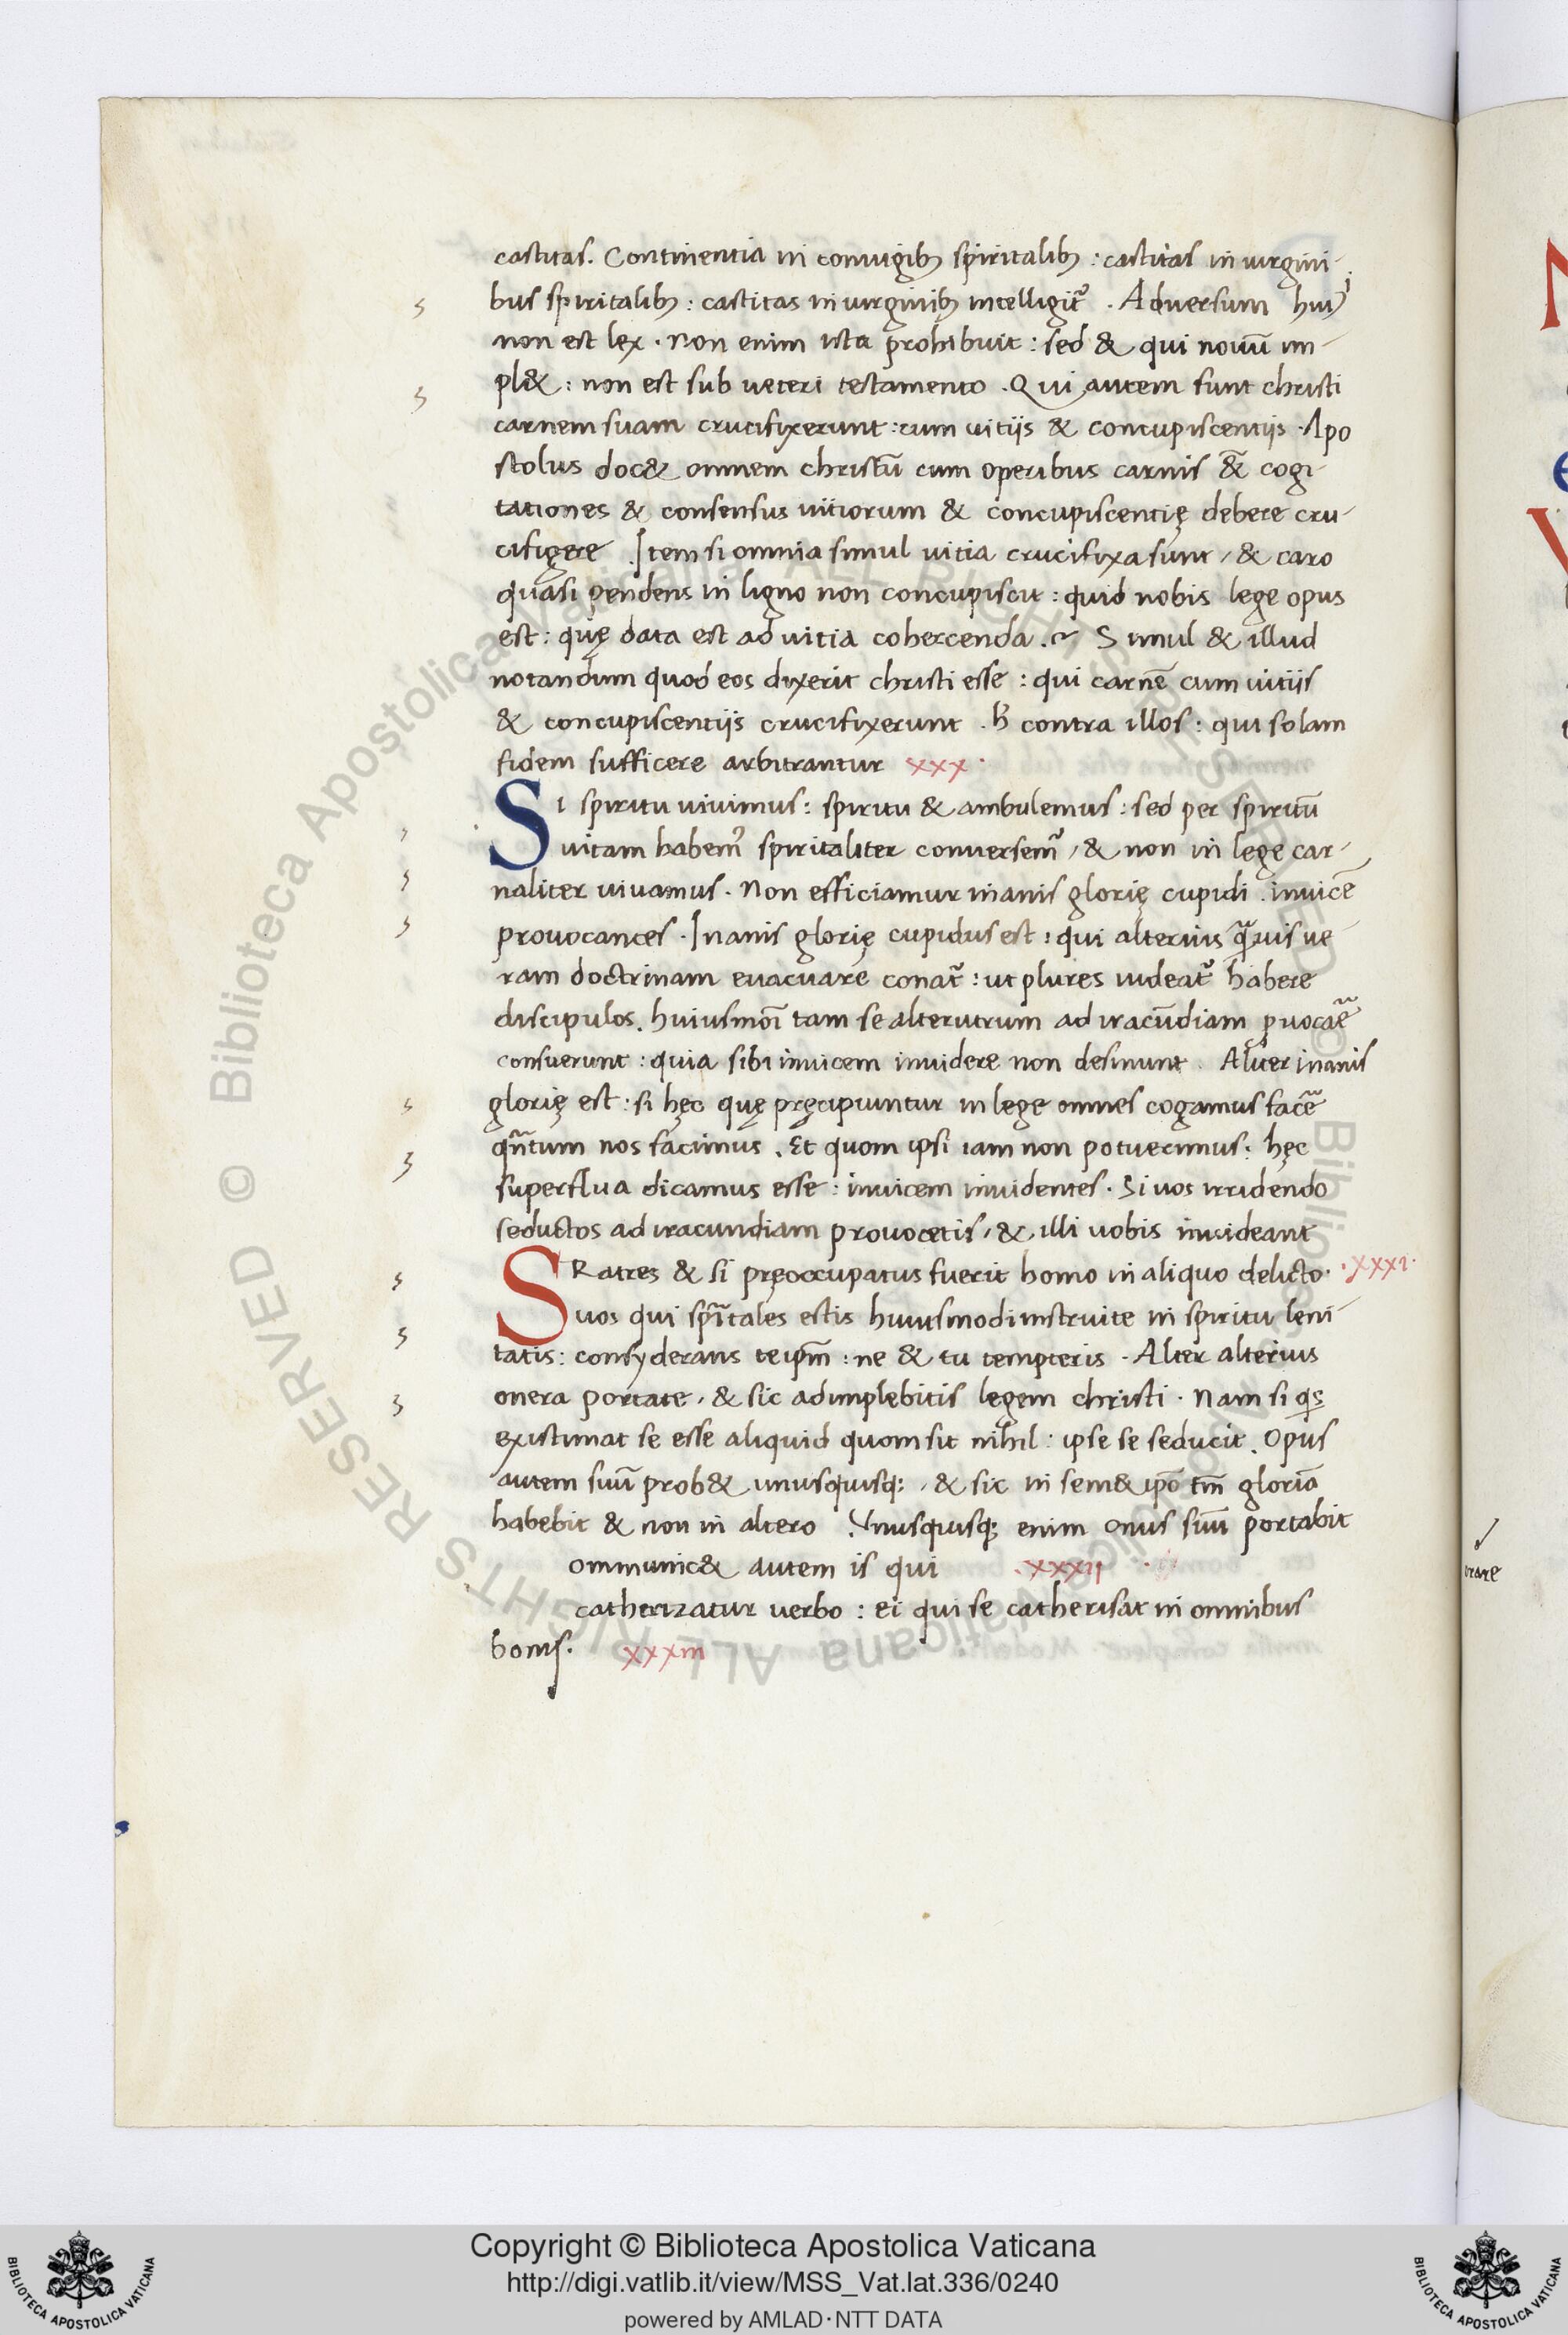 castitas. Continentia in coniugibꝫ spiritalibꝫ : castitas in uirgini-
bus spiritalibꝫ : castitas in uirginibꝫ intelligit᷑ . Aduersum huiꝰ
non est lex . Non enim ista prohibuit : sed & qui nouū im-
pl& : non est sub ueteri testamento . Qui autem sunt christi
carnem suam crucifixerunt : cum uitiis & concupiscentiis . Apo
stolus doc& omnem christū cum operibus carnis &̄ cogi-
tationes & consensus uitiorum & concupiscentię debere cru-
cifigere . Item si omnia simul uitia crucifixa sunt / & caro
quasi pendens in ligno non concupiscit : quid nobis lege opus
est : quę data est ad uitia cohercenda . Simul & illud
notandum quod eos dixerit christi esse : qui carnē cum uitiis
& concupiscentiis crucifixerunt . contra illos : qui solam
fidem sufficere arbitrantur xxx .
Si spiritu uiuimus : spiritu & ambulemus : sed per spiritū
uitam habemꝰ spiritaliter conuersemꝰ / & non in lege car-
naliter uiuamus . Non efficiamur inanis glorię cupidi . inuicē
prouocantes . Inanis glorię cupidus est : qui alterius q̄uis ue-
ram doctrinam euacuare conat᷑ : ut plures uideat᷑ habere
discipulos . huiusmoī tam se alterutrum ad iracūdiam ꝓuocāe
consuerunt : quia sibi inuicem inuidere non desinunt . Aliter inanis
glorię est : si hęc quę pręcipiuntur in lege omnes cogamus facē
qn̄tum nos facimus . Et quom ipsi iam non potuerimus : hęc
superflua dicamus esse : inuicem inuidentes . Si uos irridendo
seductos ad iracundiam prouocetis / & illi uobis inuideant
SRatres & si pręoccupatus fuerit homo in aliquo delicto . . xxxi .
uos qui spīritales estis huiusmodi instruite in spiritu leni-
tatis : consyderans teipm̄ : ne & tu tempteris . Alter alterius
onera portate / & sic adimplebitis legem christi . Nam si qs
existimat se esse aliquid quom sit nihil : ipse se seducit . Opus
autem suū prob& unusquisq; / & sic in sem&ipō tm̄ gloriā
habebit & non in altero . Vnusquisq; enim onus suū portabit
ommunic& autem is qui . xxxii
catherizatur uerbo : ei qui se catherisat in omnibus
bonis . xxxiii
orare
Copyright © Biblioteca Apostolica Vaticana
http://digi.vatlib.it/view/MSS_Vat.lat.336/0240
powered by AMLAD·NTT DATA